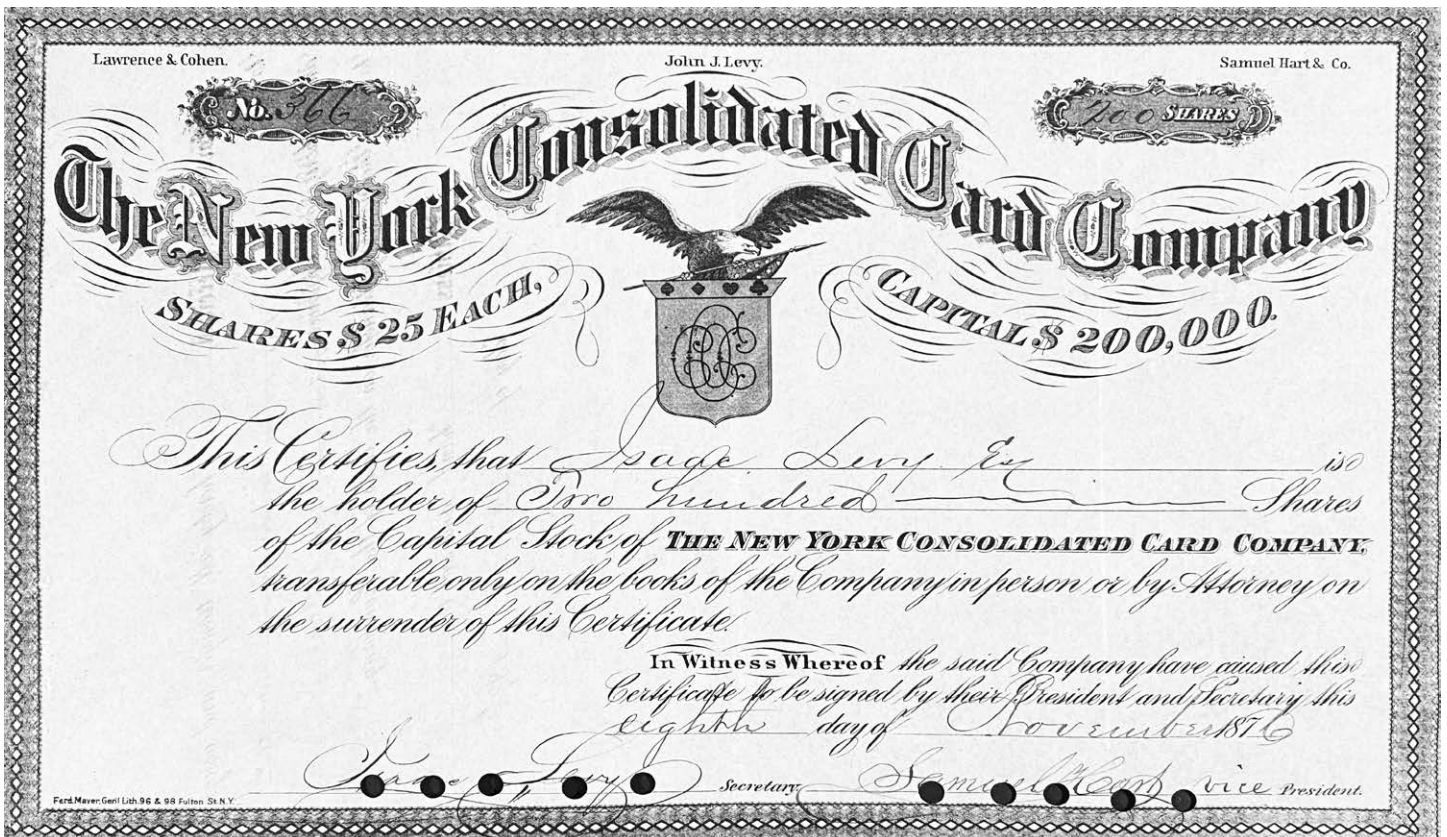 Lawrence & Cohen.
John J. Levy.
Samuel Hart & Co.
No. 366
200 SHARES
The New York Consolidated Card Company
SHARES $ 25 EACH,
CAPITAL $ 200,000.
This Certifies, that Isaac Levy Esq is
the holder of Two hundred Shares
of the Capital Stock of THE NEW YORK CONSOLIDATED CARD COMPANY,
transferable only on the books of the Company in person or by Attorney on
the surrender of this Certificate.
In Witness Whereof the said Company have caused this
Certificate to be signed by their President and Secretary this
eighth day of November 1876
Isaac Levy Secretary. Samuel Hart vice President.
Ferd. Mayer, Genl Lith. 96 & 98 Fulton St. N.Y.